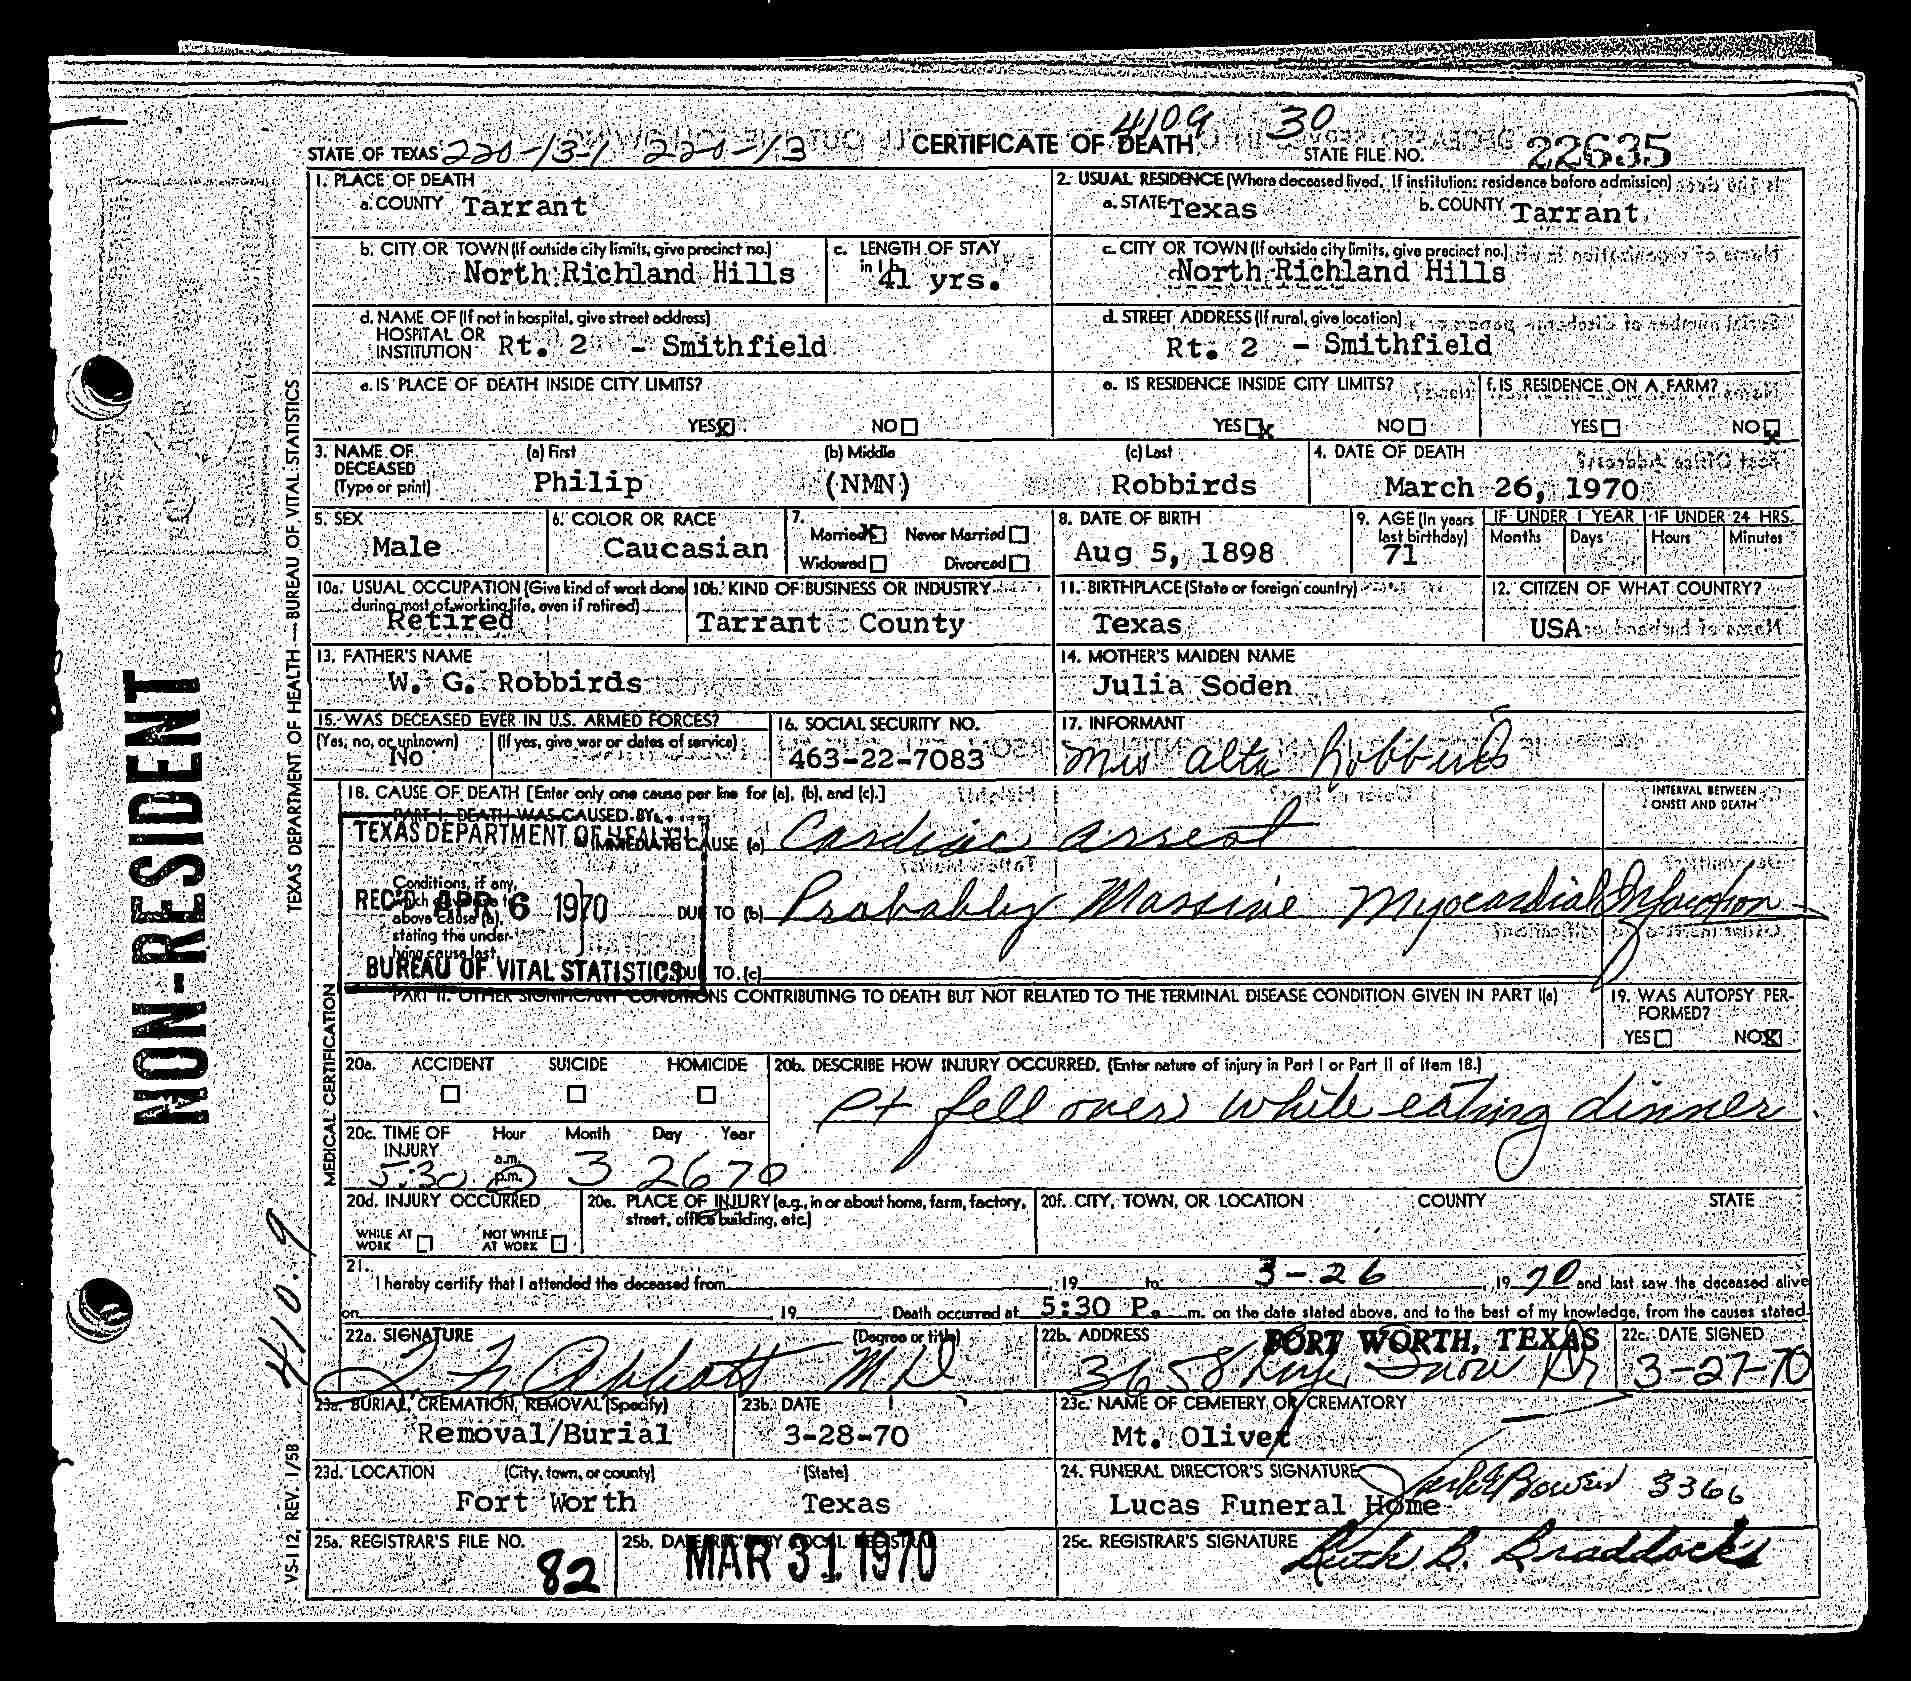 4109 30
STATE OF TEXAS 220-13-1 220-13 CERTIFICATE OF DEATH STATE FILE NO. 22635
NON-RESIDENT
TEXAS DEPARTMENT OF HEALTH — BUREAU OF VITAL STATISTICS
1. PLACE OF DEATH
a. COUNTY Tarrant
2. USUAL RESIDENCE (Where deceased lived. If institution: residence before admission)
a. STATE Texas b. COUNTY Tarrant
b. CITY OR TOWN (If outside city limits, give precinct no.)
North Richland Hills
c. LENGTH OF STAY
in 1b
41 yrs.
c. CITY OR TOWN (If outside city limits, give precinct no.)
North Richland Hills
d. NAME OF (If not in hospital, give street address)
HOSPITAL OR
INSTITUTION Rt. 2 - Smithfield
d. STREET ADDRESS (If rural, give location)
Rt. 2 - Smithfield
e. IS PLACE OF DEATH INSIDE CITY LIMITS?
YES x NO
e. IS RESIDENCE INSIDE CITY LIMITS?
YES x NO
f. IS RESIDENCE ON A FARM?
YES NO x
3. NAME OF
DECEASED
(Type or print)
(a) First (b) Middle (c) Last
Philip (NMN) Robbirds
4. DATE OF DEATH
March 26, 1970
5. SEX
Male
6. COLOR OR RACE
Caucasian
7.
Married x Never Married
Widowed Divorced
8. DATE OF BIRTH
Aug 5, 1898
9. AGE (In years
last birthday)
71
IF UNDER 1 YEAR IF UNDER 24 HRS.
Months Days Hours Minutes
10a. USUAL OCCUPATION (Give kind of work done
during most of working life, even if retired)
Retired
10b. KIND OF BUSINESS OR INDUSTRY
Tarrant County
11. BIRTHPLACE (State or foreign country)
Texas
12. CITIZEN OF WHAT COUNTRY?
USA
13. FATHER'S NAME
W. G. Robbirds
14. MOTHER'S MAIDEN NAME
Julia Soden
15. WAS DECEASED EVER IN U.S. ARMED FORCES?
(Yes, no, or unknown) (If yes, give war or dates of service)
No
16. SOCIAL SECURITY NO.
463-22-7083
17. INFORMANT
Mrs Alta Robbirds
MEDICAL CERTIFICATION
18. CAUSE OF DEATH [Enter only one cause per line for (a), (b), and (c).]
INTERVAL BETWEEN
ONSET AND DEATH
PART I. DEATH WAS CAUSED BY:
IMMEDIATE CAUSE (a) Cardiac arrest
TEXAS DEPARTMENT OF HEALTH
REC'D APR 6 1970
BUREAU OF VITAL STATISTICS
Conditions, if any,
which gave rise to
above cause (a),
stating the under-
lying cause last.
DUE TO (b) Probably Massive Myocardial Infarction
DUE TO (c)
PART II. OTHER SIGNIFICANT CONDITIONS CONTRIBUTING TO DEATH BUT NOT RELATED TO THE TERMINAL DISEASE CONDITION GIVEN IN PART I(a)
19. WAS AUTOPSY PER-
FORMED?
YES NO x
20a. ACCIDENT SUICIDE HOMICIDE
20b. DESCRIBE HOW INJURY OCCURRED. (Enter nature of injury in Part I or Part II of Item 18.)
Pt fell over while eating dinner
20c. TIME OF
INJURY
Hour Month Day Year
a.m.
p.m.
5:30 3 26 70
20d. INJURY OCCURRED
WHILE AT
WORK
NOT WHILE
AT WORK
20e. PLACE OF INJURY (e.g., in or about home, farm, factory,
street, office building, etc.)
20f. CITY, TOWN, OR LOCATION COUNTY STATE
410.9
21.
I hereby certify that I attended the deceased from , 19 to 3-26 , 19 70 and last saw the deceased alive
on , 19 . Death occurred at 5:30 P. m. on the date stated above, and to the best of my knowledge, from the causes stated.
22a. SIGNATURE (Degree or title)
Abbott MD
22b. ADDRESS FORT WORTH, TEXAS
3658 Snow Dr
22c. DATE SIGNED
3-27-70
23a. BURIAL, CREMATION, REMOVAL (Specify)
Removal/Burial
23b. DATE
3-28-70
23c. NAME OF CEMETERY OR CREMATORY
Mt. Olivet
23d. LOCATION (City, town, or county) (State)
Fort Worth Texas
24. FUNERAL DIRECTOR'S SIGNATURE
Lucas Funeral Home 3366
25a. REGISTRAR'S FILE NO.
82
25b. DATE REC'D BY LOCAL REGISTRAR
MAR 31 1970
25c. REGISTRAR'S SIGNATURE
Ruth B. Braddocks
VS-112, REV. 1/58